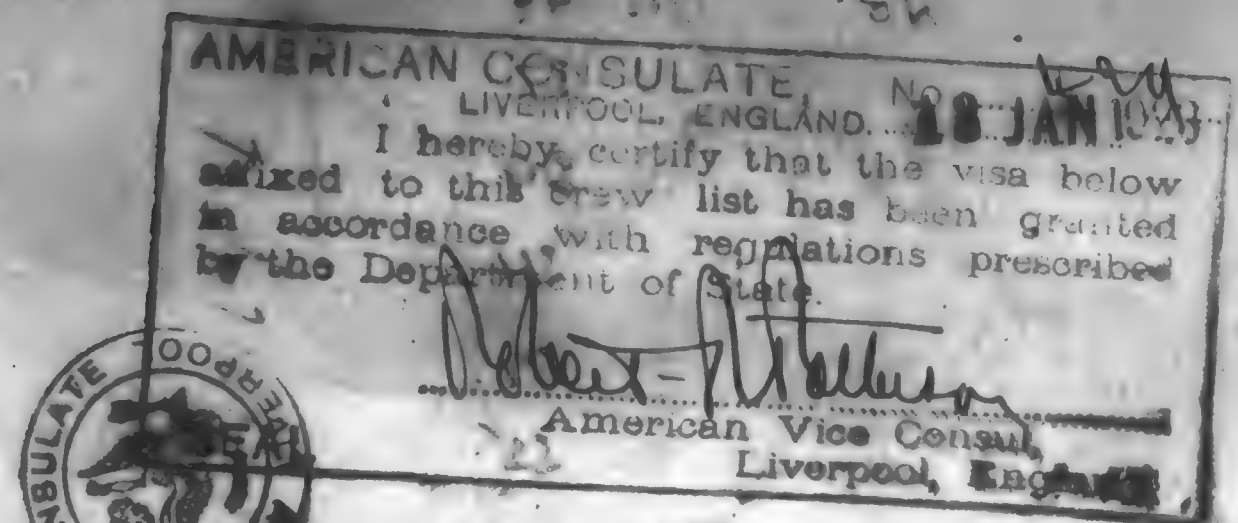 AMERICAN CONSULATE,
LIVERPOOL, ENGLAND. No. 18 JAN
I hereby certify that the visa below
affixed to this crew list has been granted
in accordance with regulations prescribed
by the Department of State.
American Vice Consul,
Liverpool, England